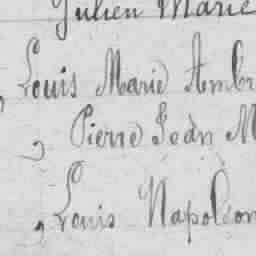 Julien Marie
Louis Marie Ambr
, Pierre Jean M
, Louis Napoléon